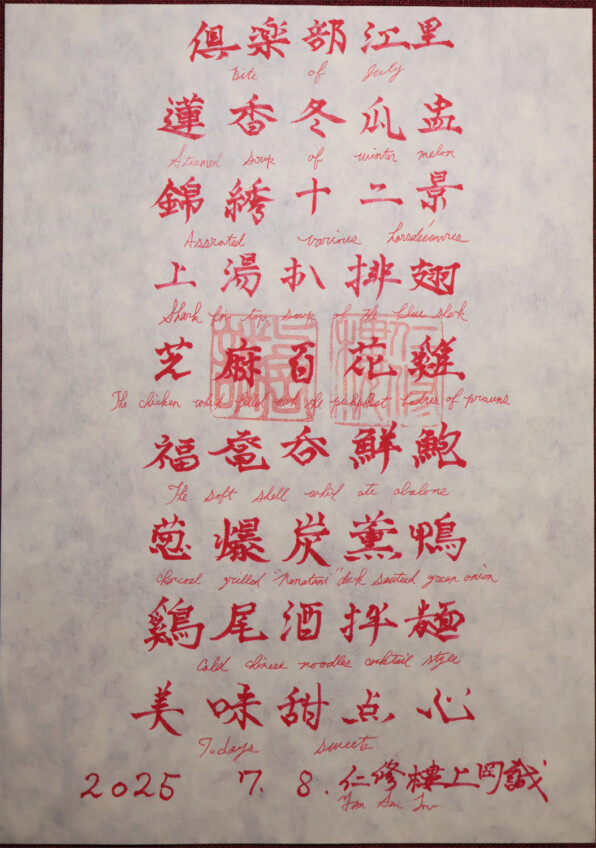 倶楽部江里
Bite of July
蓮香冬瓜盅
Steamed soup of winter melon
錦綉十二景
Assrated various horsdeeuvres
上湯扒排翅
Shark fin top soup of the blue shark
芝麻百花雞
The chicken which filled of prawns
福竜吞鮮鮑
The soft shell whih ate abalone
葱爆炭薫鴨
Charcoal grilled "Nanatani" duck sauteed green onion
鷄尾酒拌麺
Cold chinese noodles cocktail style
美味甜点心
Todays sweets
2025 7. 8. 仁修樓上岡誠